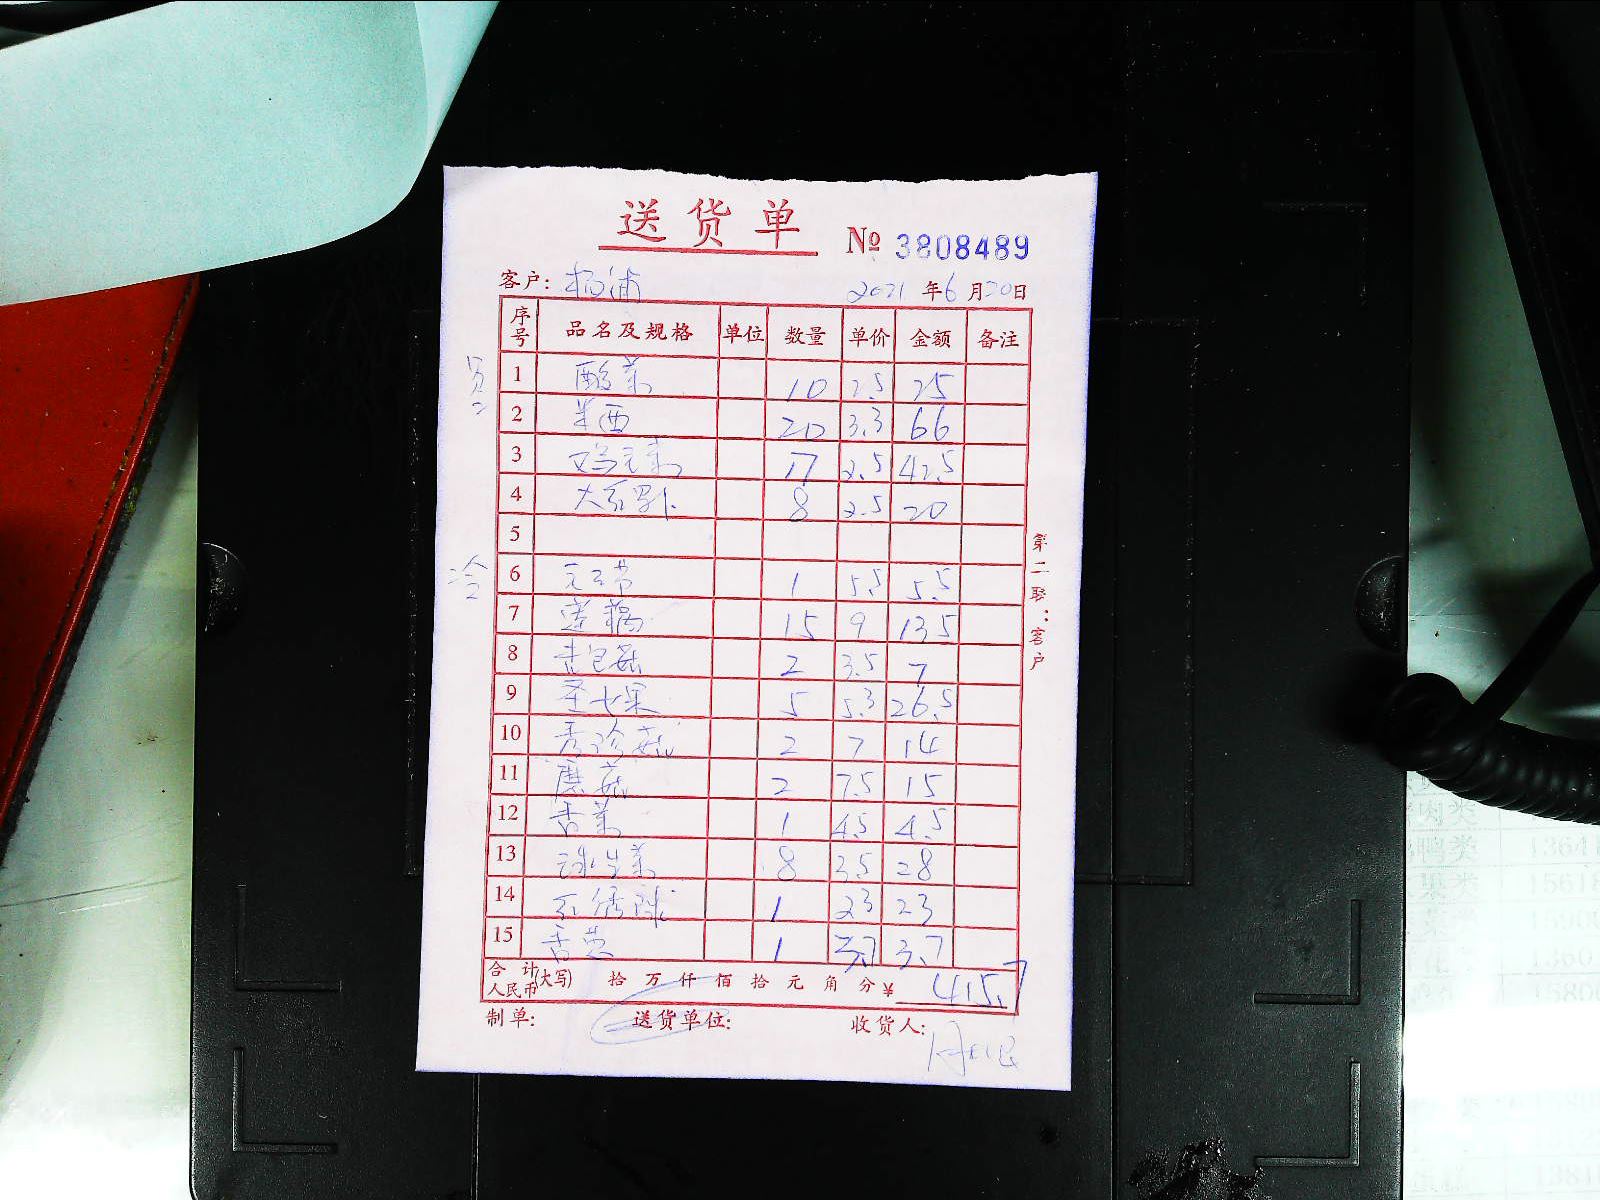 送货单 № 3808489
客户: 杨浦 2021 年 6 月 20 日
序号 品名及规格 单位 数量 单价 金额 备注
1 酸菜 10 2.5 25
2 米西 20 3.3 66
3 鸡毛菜 17 2.5 42.5
4 大红萝卜 8 2.5 20
5
冷
6 1 5.5 5.5
7 莲藕 15 9 135
8 杏包菇 2 3.5 7
9 圣女果 5 5.3 26.5
10 秀珍菇 2 7 14
11 蘑菇 2 7.5 15
12 香菜 1 4.5 4.5
13 球生菜 8 3.5 28
14 红绣球 1 23 23
15 香葱 1 3.7 3.7
合计人民币(大写) 拾 万 仟 佰 拾 元 角 分 ¥ 415.7
制单: 送货单位: 收货人:
第二联:客户
肉类
鸭类 1364
果类 1561